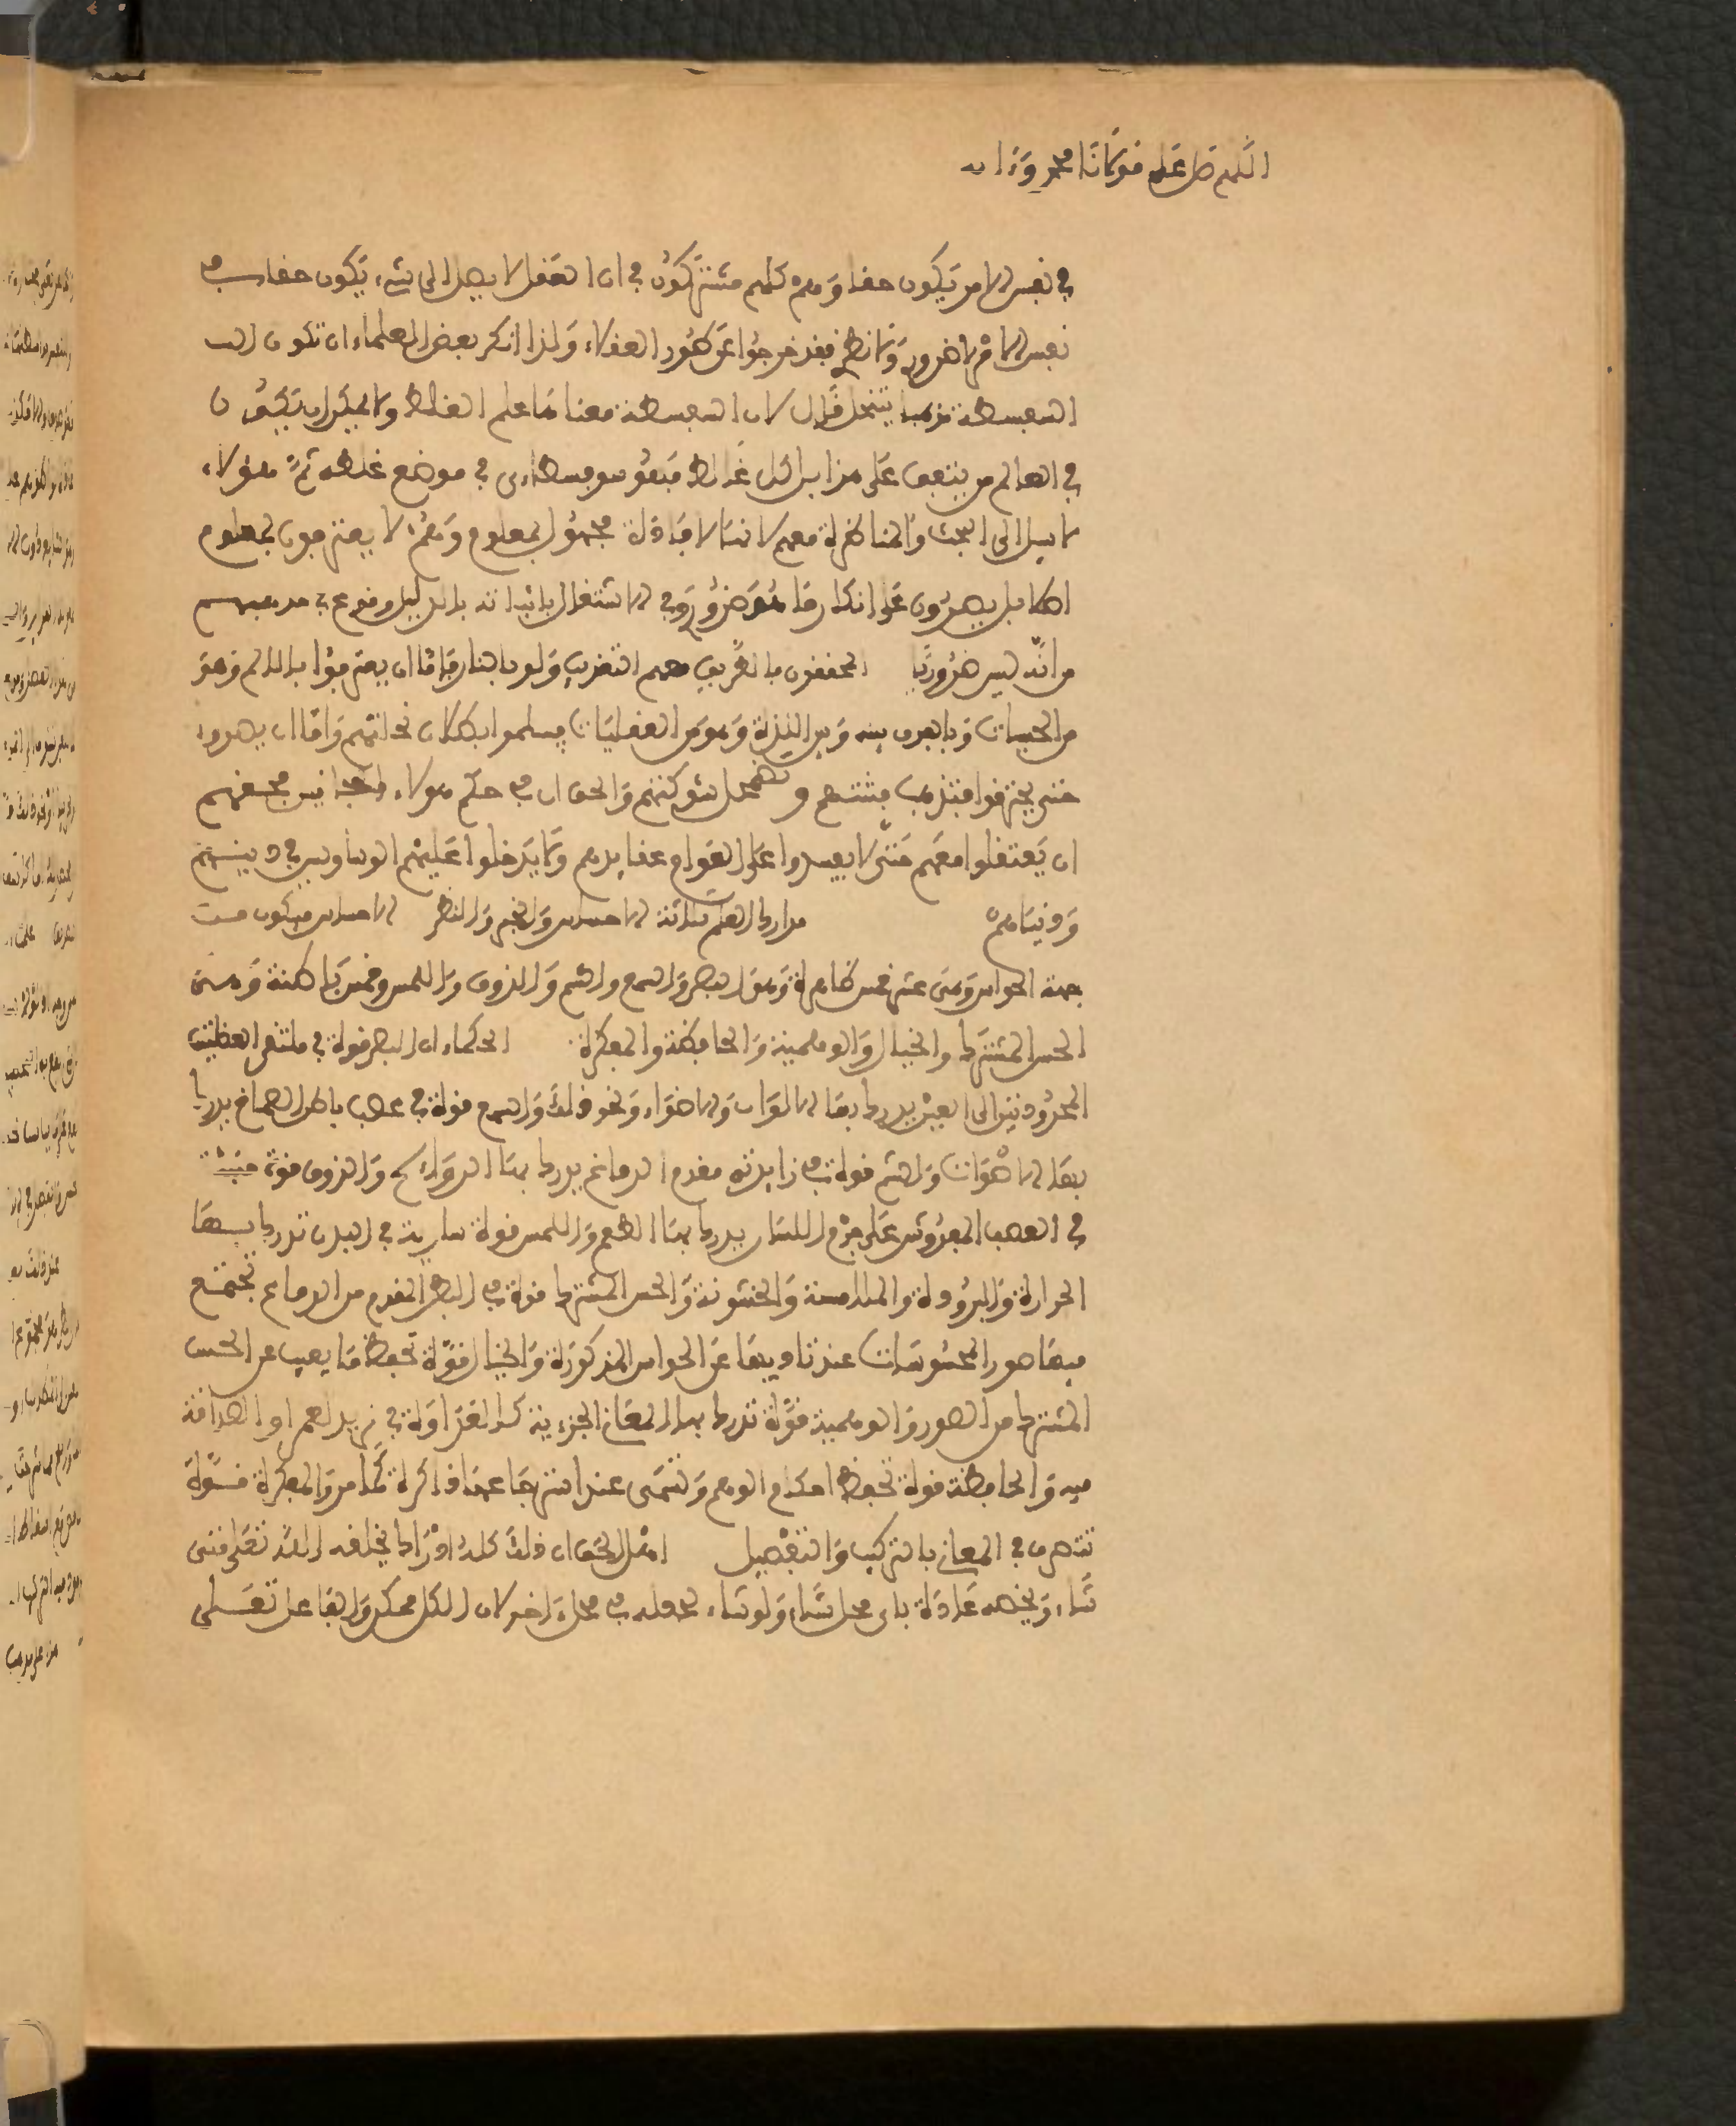 اللهم صل على مولانا محمد وءاله
في نفس الامر يكون حقا وهم كلهم مشتركون في ان العقل لا يصل الى شيء يكون حقا في
نفس الامر لا ضرورة ولا نظر فقد خرجوا عن طور العقلاء ولذا انكر بعض العلماء ان تكون
السفسطة مذهبا ينتحل قال لان السفسطة معناها علم الغلط ولا يمكن ان يكون
في العالم من يتفق على هذا بل كل غالط فهو سوفسطاءي في موضع غلطه ثم هؤلاء
لا سبيل الى البحث والمناظرة معهم لانها لافادة مجهول بمعلوم وهم لا يعترفون بمعلوم
اصلا بل يصرون على انكار ما هو ضروري وفي الاشتغال باثباته بالدليل وقوع في مذهبهم
من انه ليس ضروريا المحققون بالطريق معهم التعذيب ولو بالنار فاما ان يعترفوا بالالم وهو
من الحسيات وبالفرق بينه وبين اللذة وهو من العقليات فيسلموا بطلان نحلتهم واما ان يصروا
حتى يحترقوا فتذهب فتنتهم وتضمحل شوكتهم والحق ان في حكم هؤلاء المجانين فحقهم
ان يعتقلوا معهم حتى لا يفسدوا على العوام عقايدهم ولا يدخلوا عليهم الوساويس في دينهم
ودنياهم مدارك العلم ثلاثة الاحساس والخبر والنظر الاحساس فيكون من
جهة الحواس وهي عشر خمس ظاهرة وهو البصر والسمع والشم والذوق واللمس وخمس باطنة وهي
الحس المشترك والخيال والوهمية والحافظة والمفكرة الحكماء ان البصر قوة في ملتقى العظيتين
المحرودتين الى العين يدرك بها الالوان والاضواء ونحو ذلك والسمع قوة في عصب باطن الصماخ يدرك
بها الاصوات والشم قوة في زايدتي مقدم الدماغ يدرك بها الروائح والذوق قوة منبثة
في العصب المفروش على جرم اللسان يدرك بها الطعم واللمس قوة سارية في البدن تدرك بها
الحرارة والبرودة والملامسة والخشونة والحس المشترك قوة في البطن المقدم من الدماغ تجتمع
فيها صور المحسوسات عند تاديتها عن الحواس المذكورة والخيال قوة تحفظ ما يغيب عن الحس
المشترك من الصور والوهمية قوة تدرك بها المعاني الجزءية كالعداوة في زيد لعمر او الصداقة
فيه والحافظة قوة تحفظ احكام الوهم وتسمى عند استرجاعها ذاكرة كما مر والمفكرة قوة
تتصرف في المعاني بالتركيب والتفصيل اهل الحق ان ذلك كله ادراك يخلقه الله تعلى متى
شاء ويخصه عادة باي محل شاء ولو شاء لجعله في محل ءاخر لان الكل ممكن والفاعل تعلى